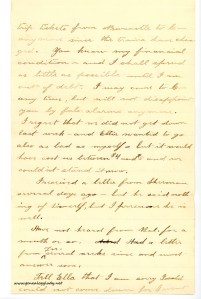 trip tickets from Newcastle to
anymore since the trains have
You know my financial
condition and I shall spend
as little as possible until I am
out of debt. I may come to
any time, but will not disappoint
you by
I regret that we did not get down
last week and Etta wanted to go
also as bad as myself but it would
have cost us between $4 and $5 and we
could not stand it now.
I received a letter from Sherman
several days ago but he said nothing
of himself, but I presume he is
well.
Have not heard from that for a
month or so. Had a letter
from several weeks since and must
answer soon.
Tell Ella that I am sorry I could
could not come down for